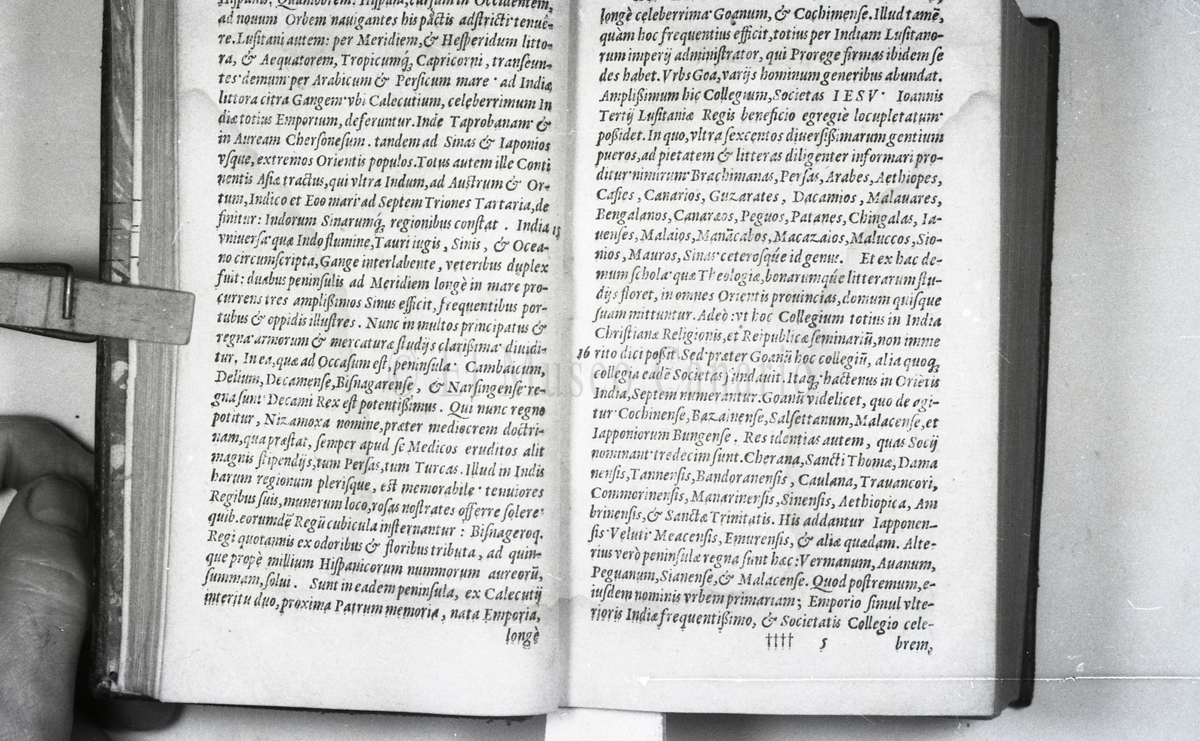 Hispani, Quamobrem: Hispana, cursum in Occidentem,
ad nouum Orbem nauigantes his pactis adstricti tenuê-
re. Lusitani autem: per Meridiem, & Hesperidum litto-
ra, & Aequatorem, Tropicumq́, Capricorni, transeun-
tes demum per Arabicum & Persicum mare · ad Indiæ
littora citra Gangem vbi Calecutium, celeberrimum In
diæ totius Emporium, deferuntur. Inde Taprobanam &
in Auream Chersonesum . tandem ad Sinas & Iaponios
vsque, extremos Orientis populos. Totus autem ille Conti
nentis Asiæ tractus, qui vltra Indum, ad Austrum & Or-
tum, Indico et Eoo mari ad Septem Triones Tartaria, de
finitur: Indorum Sinarumq́, regionibus constat . India 15
vniuersa quæ Indo flumine, Tauri iugis, Sinis, & Ocea-
no circumscripta, Gange interlabente, veteribus duplex
fuit: duabus peninsulis ad Meridiem longè in mare pro-
currens tres amplißimos Sinus efficit, frequentibus por-
tubus & oppidis illustres . Nunc in multos principatus &
regna armorum & mercaturæ studijs clarißima diuidi-
tur. In ea, quæ ad Occasum est, peninsula· Cambaicum,
Delium, Decamense, Bisnagarense , & Narsingense re-
gna sunt· Decami Rex est potentißimus . Qui nunc regno
potitur, Nizamoxa nomine, præter mediocrem doctri-
nam, qua præstat, semper apud se Medicos eruditos alit
magnis stipendijs, tum Persas, tum Turcas. Illud in Indis
harum regionum plerisque, est memorabile · tenuiores
Regibus suis, munerum loco, rosas nostrates offerre solere·
quib. eorumdē Regū cubicula insternantur : Bisnageroq.
Regi quotannis ex odoribus & floribus tributa, ad quin-
que propè millium Hispanicorum nummorum aureorū,
summam, solui . Sunt in eadem peninsula, ex Calecutij
interitu duo, proxima Patrum memoria, nata Emporia,
longè
longè celeberrima· Goanum, & Cochimense. Illud tamē,
quàm hoc frequentius efficit, totius per Indiam Lusitano-
rum imperij administrator, qui Prorege firmas ibidem se
des habet. Vrbs Goa, varijs hominum generibus abundat.
Amplißimum hic Collegium, Societas IESV· Ioannis
Tertij Lusitaniæ Regis beneficio egregiè locupletatum·
poßidet. In quo, vltra sexcentos diuersißimarum gentium
pueros, ad pietatem & litteras diligenter informari pro-
ditur nimirum· Brachimanas, Persas, Arabes, Aethiopes,
Cafres , Canarios, Guzarates , Dacamios , Malauares,
Bengalanos, Canaræos, Peguos, Patanes, Chingalas, Ia-
uenses, Malaios, Manācabos, Macazaios, Maluccos, Sio-
nios, Mauros, Sinas· ceterosq́ue id genus. Et ex hac de-
mum schola· quæ Theologiæ, bonarumq́ue litterarum stu-
dijs floret, in omnes Orientis prouincias, domum quisque
suam mittuntur. Adeò: vt hoc Collegium totius in India
Christianæ Religionis, et Reipublicæ seminariū, non imme
16 rito dici poßit. Sed præter Goanū hoc collegiū, alia quoq́,
collegia eadē Societas fundauit. Itaq; hactenus in Oriētis
India, Septem numerantur. Goanū videlicet, quo de agi-
tur· Cochinense, Bazainense, Salsettanum, Malacense, et
Iapponiorum Bungense . Residentias autem , quas Socij
nominant· tredecim sunt. Cherana, Sancti Thomæ, Dama
nensis, Tannensis, Bandoranensis , Caulana, Trauancori,
Commorinensis, Manarinensis, Sinensis, Aethiopica, Am
brinensis, & Sanctæ Trinitatis. His addantur Iapponen-
sis· Veluti Meacensis, Emurensis, & aliæ quædam. Alte-
rius verò peninsulæ regna sunt hæc: Vermanum, Auanum,
Peguanum, Sianense, & Malacense. Quod postremum, e-
iusdem nominis vrbem primariam ; Emporio simul vlte-
rioris Indiæ frequentißimo, & Societatis Collegio cele-
†††† 5 brem,